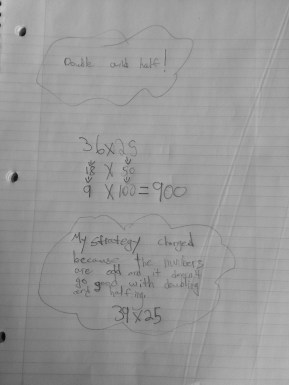 Double and half!
36x25
18 x 50
9 x 100 = 900
My strategy changed
because the numbers
are odd and it doesn't
go good with doubling
and halfing.
39x25